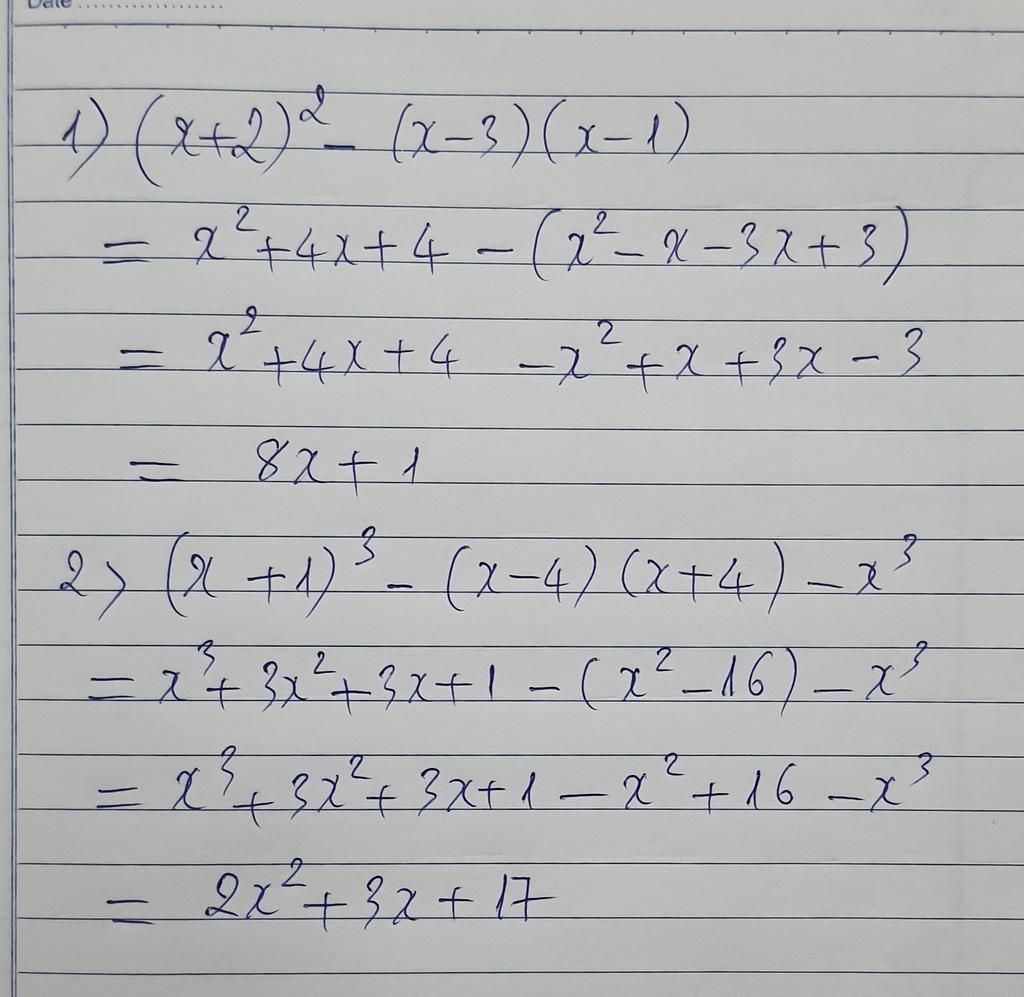 Date ....................
1) (x+2)² - (x-3)(x-1)
= x²+4x+4 - (x²-x-3x+3)
= x²+4x+4 -x²+x+3x-3
= 8x+1
2> (x+1)³ - (x-4)(x+4) - x³
= x³+3x²+3x+1 - (x²-16) - x³
= x³+3x²+3x+1 - x²+16 - x³
= 2x²+3x+17